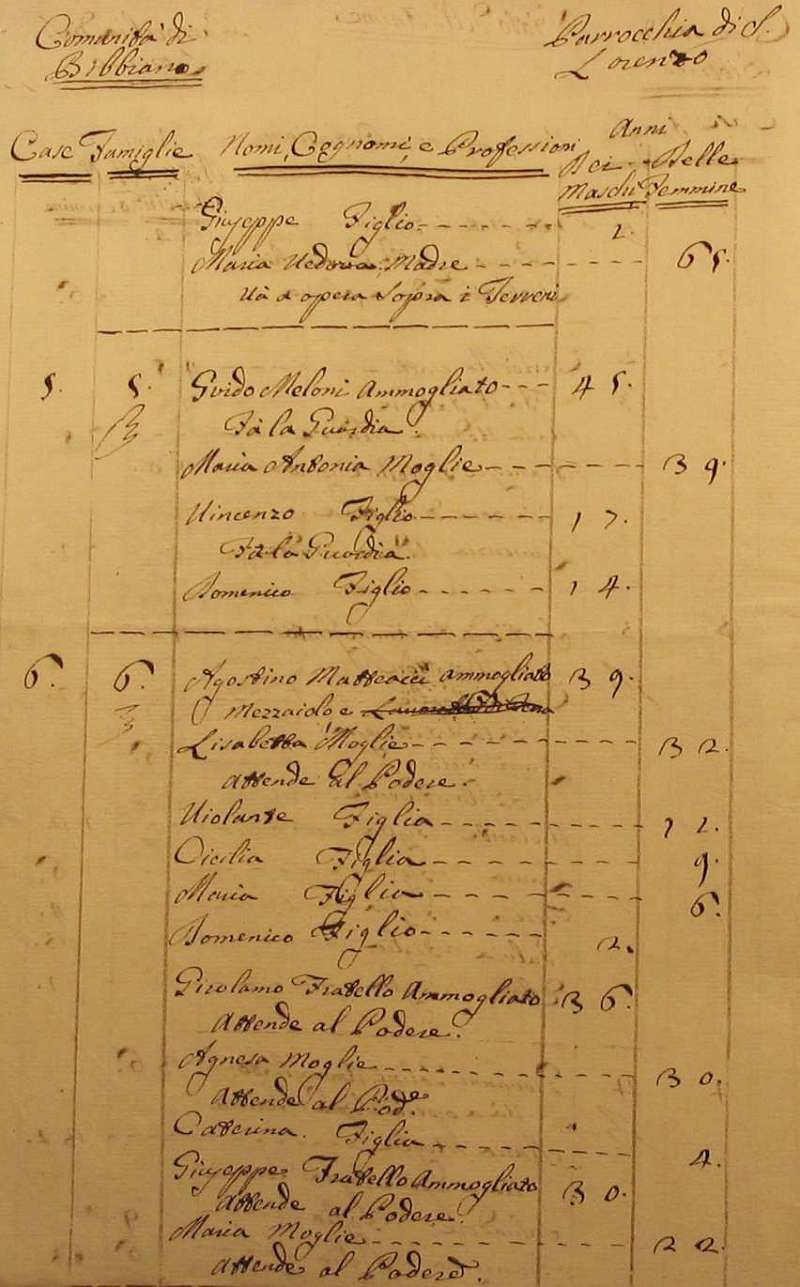 Comunità di
Bibbiano
Parrocchia di S.
Lorenzo
Case Famiglie Nomi, Cognomi, e Professioni Anni
Dei Maschi Delle Femmine
Giuseppe Figlio 2.
Maria Vedova Madre 65.
Và a opera sopra i Terreni
5. 5. Guido Meloni Ammogliato 45.
Fà la Guardia.
Maria Antonia Moglie 39.
Vincenzo Figlio 17.
Fà la Guardia.
Domenico Figlio 14.
6. 6. Agostino Matteacci Ammogliato 39.
Mezzaiolo e
Lisabetta Moglie 32.
Attende al Podere.
Violante Figlia 12.
Cicilia Figlia 9.
Maria Figlia 6.
Domenico Figlio 2.
Girolamo Fratello Ammogliato 36.
Attende al Podere.
Agnesa Moglie 30.
Attende al Pod.e
Catterina Figlia 4.
Giuseppe Fratello Ammogliato 30.
Attende al Podere.
Maria Moglie 22.
Attende al Podere.